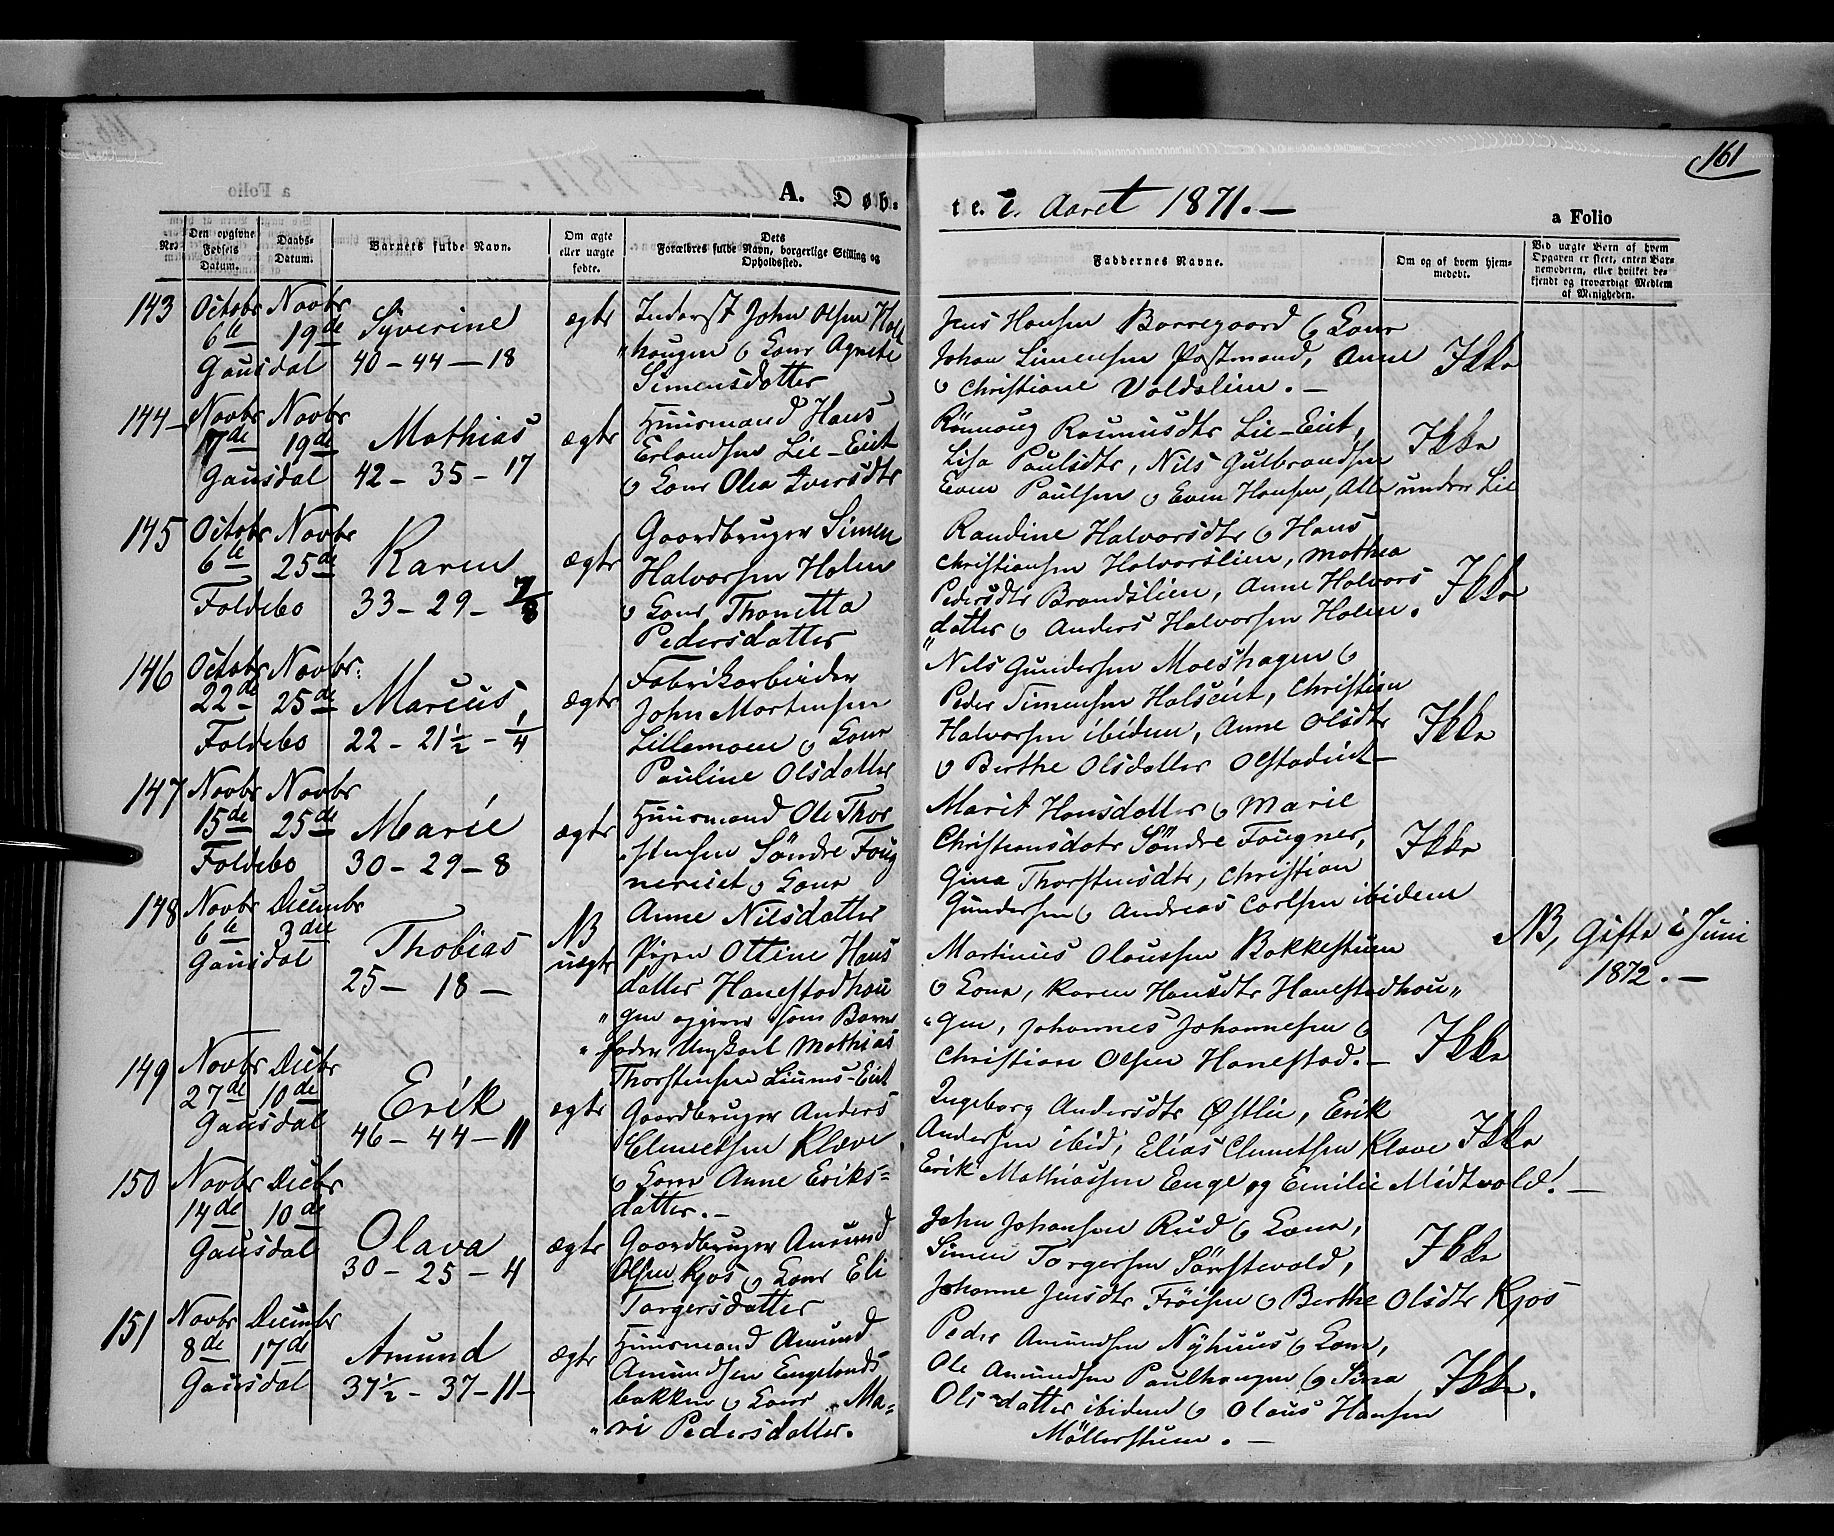 161
A. Døb-
te. i Aaret 1871. —
a Folio
No.
Den opgivne Fødsels Datum.
Daabs-Datum.
Barnets fulde Navn.
Om ægte eller uægte fødte.
Dets Forældres fulde Navn, borgerlige Stilling og Opholdssted.
Faddernes Navne.
Om og af hvem hjemmedøbt.
Vid uægte Børn af hvem Opgaven er skeet, enten Barnemoderen, eller hvilket bekjendt og troværdigt Medlem af Menigheden.
143 Octobr 6te Gausdal
Novbr 19de
Syverine
40 - 44 - 18
ægte
Inderst John Olsen
haugen o Kone Agnete
Simensdatter
Jens Hansen Borregaard o Kone
Johan Simensen Postmand, Anne
o Christiane Voldslien. —
Ikke
144 Novbr 17de Gausdal
Novbr 19de
Mathias
42 - 35 - 17
ægte
Huusmand Hans
Erlandsen Lie-Eiet
o Kone Olea Iversdtr
Rønnoug Rasmusdtr Lie-Eiet,
Lisa Paulsdtr, Nils Gulbrandsen
Even Paulsen o Even Hansen, Alle under Lie
Ikke
145 Octobr 6te Foldebo
Novbr 25de
Karen
33 - 29 - 7/8
ægte
Gaardbruger Simen
Halvorsen Holen
o Kone Thonetta
Pedersdatter
Randine Halvorsdtr o Hans
Christiansen Halvorslien, Mathea
Pedersdtr Brandslien, Anne Halvors
datter o Anders Halvorsen Holen.
Ikke
146 Octobr 22de Foldebo
Novbr: 25de
Marcus
22 - 21 1/2 - 1/4
ægte
Fabrikarbeider
John Mortensen
Lillemoen o Kone
Pauline Olsdatter
Nils Gundersen Moeshagen o
Peder Simensen Holseiet, Christian
Halvorsen ibidem, Anne Olsdtr
o Berthe Olsdatter Olstadeiet —
Ikke
147 Novbr 15de Foldebo
Novbr 25de
Marie
30 - 29 - 8
ægte
Huusmand Ole Thor
stensen Søndre Foug
nereiet o Kone
Anne Nilsdatter
Marit Hansdatter o Marie
Christiansdatr Søndre Fougner,
Gina Thorstensdtr, Christian
Gundersen o Andreas Carlsen ibidem
Ikke
148 Novbr 6te Gausdal
Decembr 3die
Thobias
25 - 18 -
NB
uægte
Pigen Ottine Hans
datter Hanestadhou
"gen opgiver som Barne
"fader Ungkarl Mathias
Thorstensen Liums-Eiet
Martinus Olaussen Bakkestuen
o Kone, Karen Hansdtr Hanestadhou"
"gen, Johannes Johannesen o
Christian Olsen Hanestad. —
Ikke
NB, Gifte i Juni
1872. —
149 Novbr 27de Gausdal
Decbr 10de
Erik
46 - 44 - 11
ægte
Gaardbruger Anders
Clemetsen Kleve
o Kone Anne Eriks=
datter. —
Ingeborg Andersdtr Østlie, Erik
Andersen ibid, Elias Clemetsen Klave
Erik Mathiassen Enge og Emilie Midtvold. —
Ikke
150 Novbr 14de Gausdal
Decbr 10de
Olava
30 - 25 - 4
ægte
Gaardbruger Amund
Olsen Kjos o Kone Eli
Torgersdatter
John Johansen Rud o Kone,
Simen Torgersen Sørstevold,
Johanne Jensdtr Frøisen o Berthe Olsdtr Kjos
Ikke
151 Novbr 8de Gausdal
Decembr 17de
Amund
37 1/2 - 37 - 11 -
ægte
Huusmand Amund
Amundsen Engelands
bakken o Kone Ma=
"ri Pedersdatter.
Peder Amundsen Nyhuus o Kone,
Ole Amundsen Paulhaugen o Sina
Olsdatter ibidem o Olaus Hansen
Møllerstuen. —
Ikke.